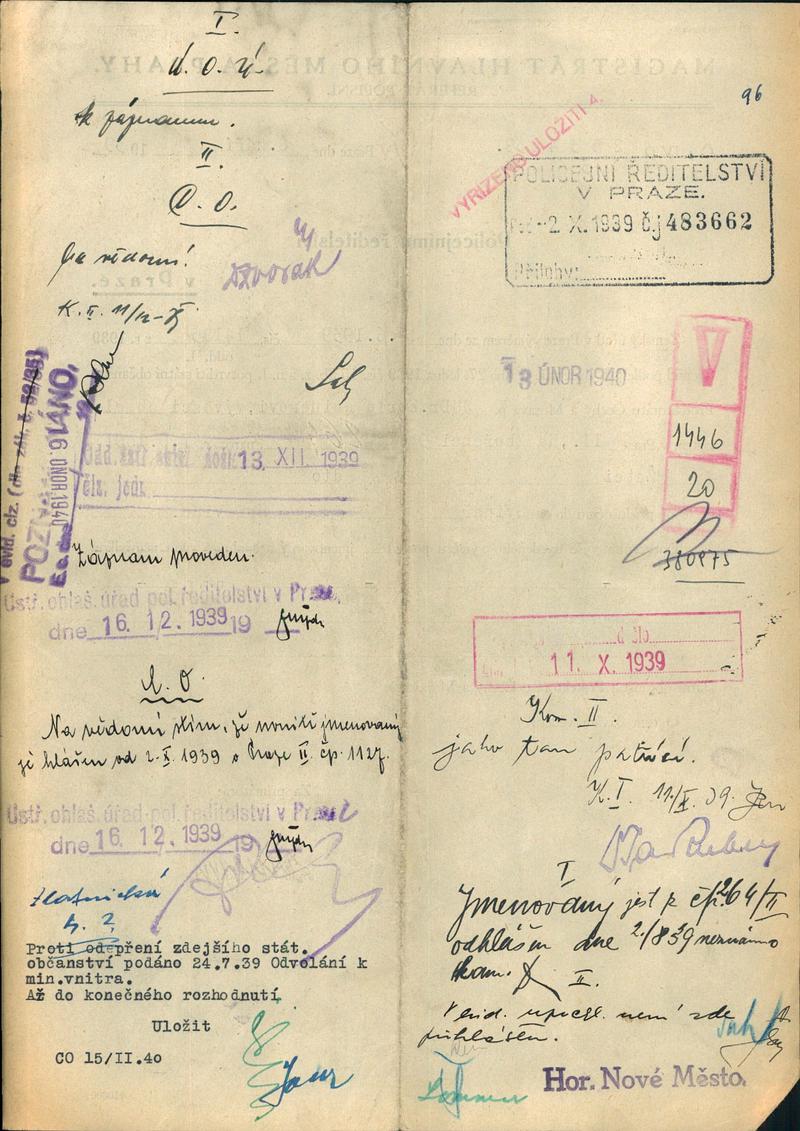 I.
Ú. O. Ú.
k záznamu.
II.
C. O.
Na vědomí!
Dvořák
K. II. 11/12-39
v evid. ciz. (dle zák. č. 52/35)
POZNAMENÁNO,
16. ÚNOR 1940
13. XII. 1939
čís. jedn.
Záznam proveden.
Ústř. ohlaš. úřad pol. ředitelství v Praze
dne 16. 12. 1939 19
C. O.
Na vědomí s tím, že novití jmenovaný
je hlášen od 2. X. 1939 v Praze II. čp. 1127.
Ústř. ohlaš. úřad pol. ředitelství v Praze
dne 16. 12. 1939 19
Zlatnická
č. 2
Proti odepření zdejšího stát.
občanství podáno 24.7.39 Odvolání k
min.vnitra.
Až do konečného rozhodnutí
Uložit
CO 15/II.40
96
VYŘÍZENO ULOŽITI
POLICEJNÍ ŘEDITELSTVÍ
V PRAZE.
-2. X. 1939 č.j 483662
Přílohy:
13 ÚNOR 1940
V
1446
20
380975
11. X. 1939
Kom. II.
jako tam patřící.
K. I. 11/X. 39.
I
Jmenovaný jest z čp. 264/II
odhlášen dne 2/8 39 neznámo
kam.
II.
V evid. není zde
přihlášen.
Hor. Nové Město.